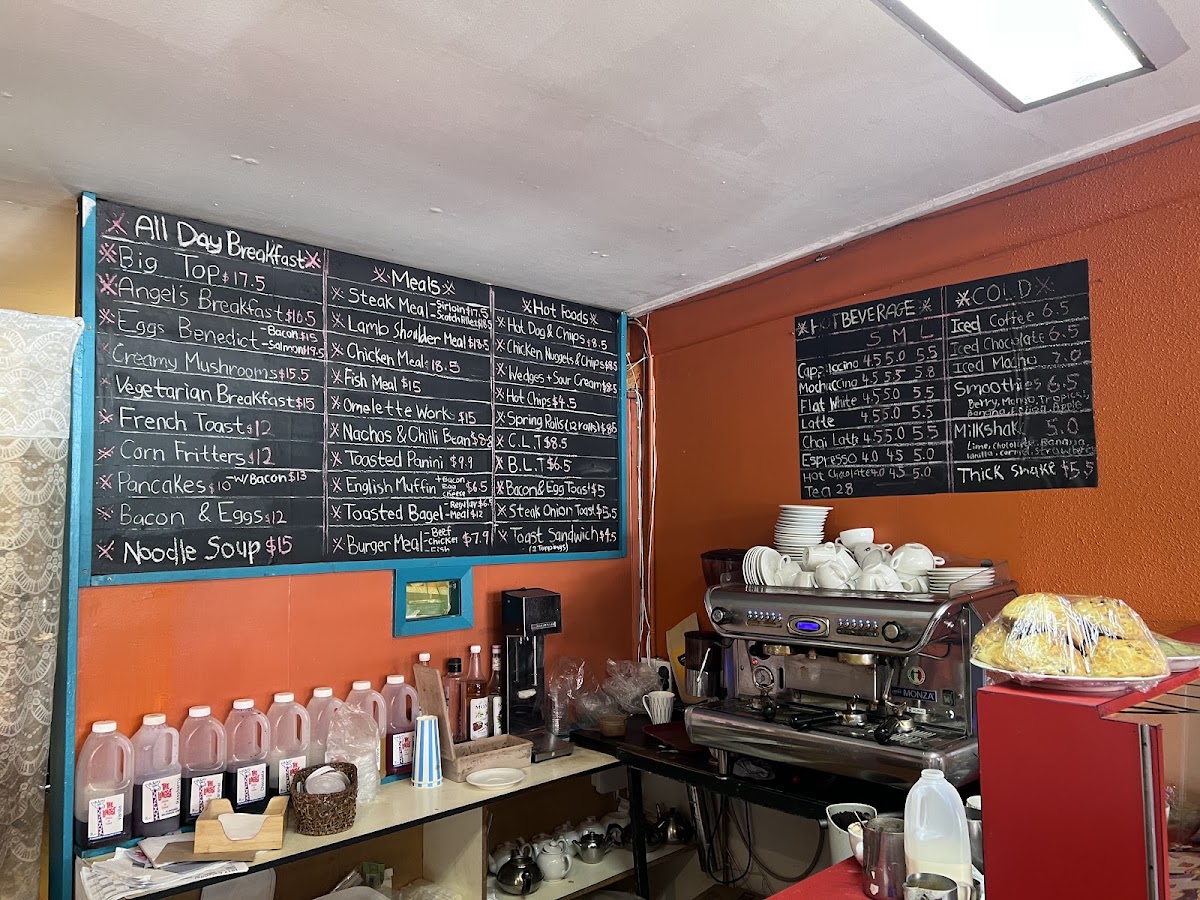 All Day Breakfast
Big Top $17.5
Angel's Breakfast $16.5
Eggs Benedict -Bacon $15
-Salmon $19.5
Creamy Mushrooms $15.5
Vegetarian Breakfast $15
French Toast $12
Corn Fritters $12
Pancakes $10 -w/Bacon $13
Bacon & Eggs $12
Noodle Soup $15
Meals
Steak Meal -Sirloin $17.5
-Scotch Fillet $18.5
Lamb Shoulder Meal $18.5
Chicken Meal 18.5
Fish Meal $15
Omelette Works $15
Nachos & Chilli Bean $8.8
Toasted Panini $9.9
English Muffin +Bacon
Egg
Cheese $6.5
Toasted Bagel -Regular $6.5
-Meal $12
Burger Meal -Beef
-Chicken
-Fish $7.9
Hot Foods
Hot Dog & Chips $8.5
Chicken Nuggets & Chips $8.5
Wedges + Sour Cream $8.5
Hot Chips $4.5
Spring Rolls (12 rolls) $8.5
C.L.T $8.5
B.L.T $6.5
Bacon & Egg Toast $5
Steak Onion Toast $5.5
Toast Sandwich $4.5
(2 Toppings)
HOT BEVERAGE
S M L
Cappuccino 4.5 5.0 5.5
Mochaccino 4.5 5.5 5.8
Flat White 4.5 5.0 5.5
Latte 4.5 5.0 5.5
Chai Latte 4.5 5.0 5.5
Espresso 4.0 4.5 5.0
Hot Chocolate 4.0 4.5 5.0
Tea 2.8
COLD
Iced Coffee 6.5
Iced Chocolate 6.5
Iced Mocha 7.0
Smoothies 6.5
Berry, Mango, Tropical,
Banana, Feijoa, Apple
Milkshake 5.0
Lime, Chocolate, Banana
Vanilla, Caramel, Strawberry
Thick Shake $5.5
MONZA